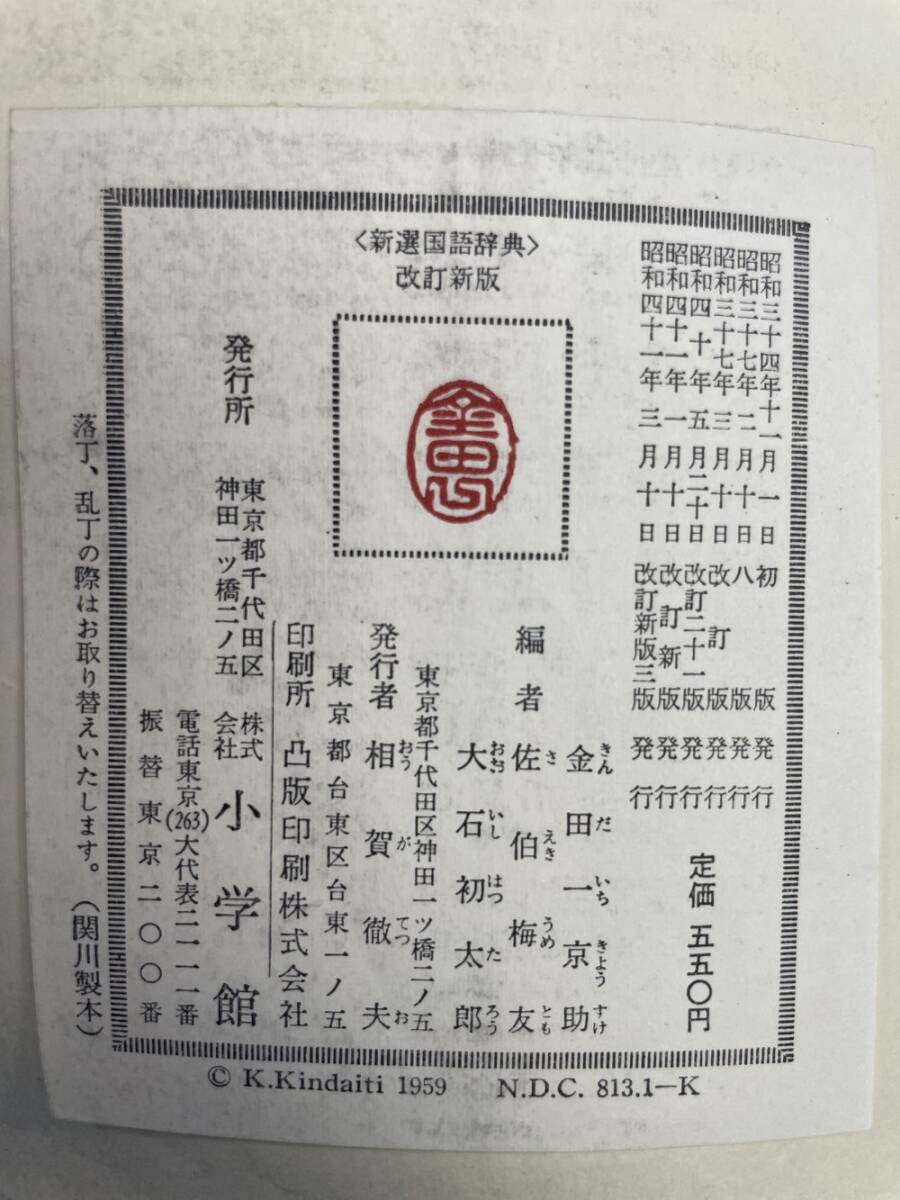 昭和三十四年十一月一日初版発行
昭和三十七年二月十日八版発行
昭和三十七年三月十日改訂版発行
昭和四十年五月二十日改訂二十一版発行
昭和四十一年一月十日改訂新版発行
昭和四十一年三月十日改訂新版三版発行
定価 五五〇円
〈新選国語辞典〉
改訂新版
編者
金田一京助
きんだいちきようすけ
佐伯梅友
さえきうめとも
大石初太郎
おおいしはつたろう
東京都千代田区神田一ツ橋二ノ五
発行者 相賀徹夫
おうがてつお
東京都台東区台東一ノ五
印刷所 凸版印刷株式会社
発行所
東京都千代田区
神田一ツ橋二ノ五
株式会社 小学館
電話東京(263)大代表二一一一番
振替東京二〇〇番
落丁、乱丁の際はお取り替えいたします。(関川製本)
© K.Kindaiti 1959 N.D.C. 813.1―K